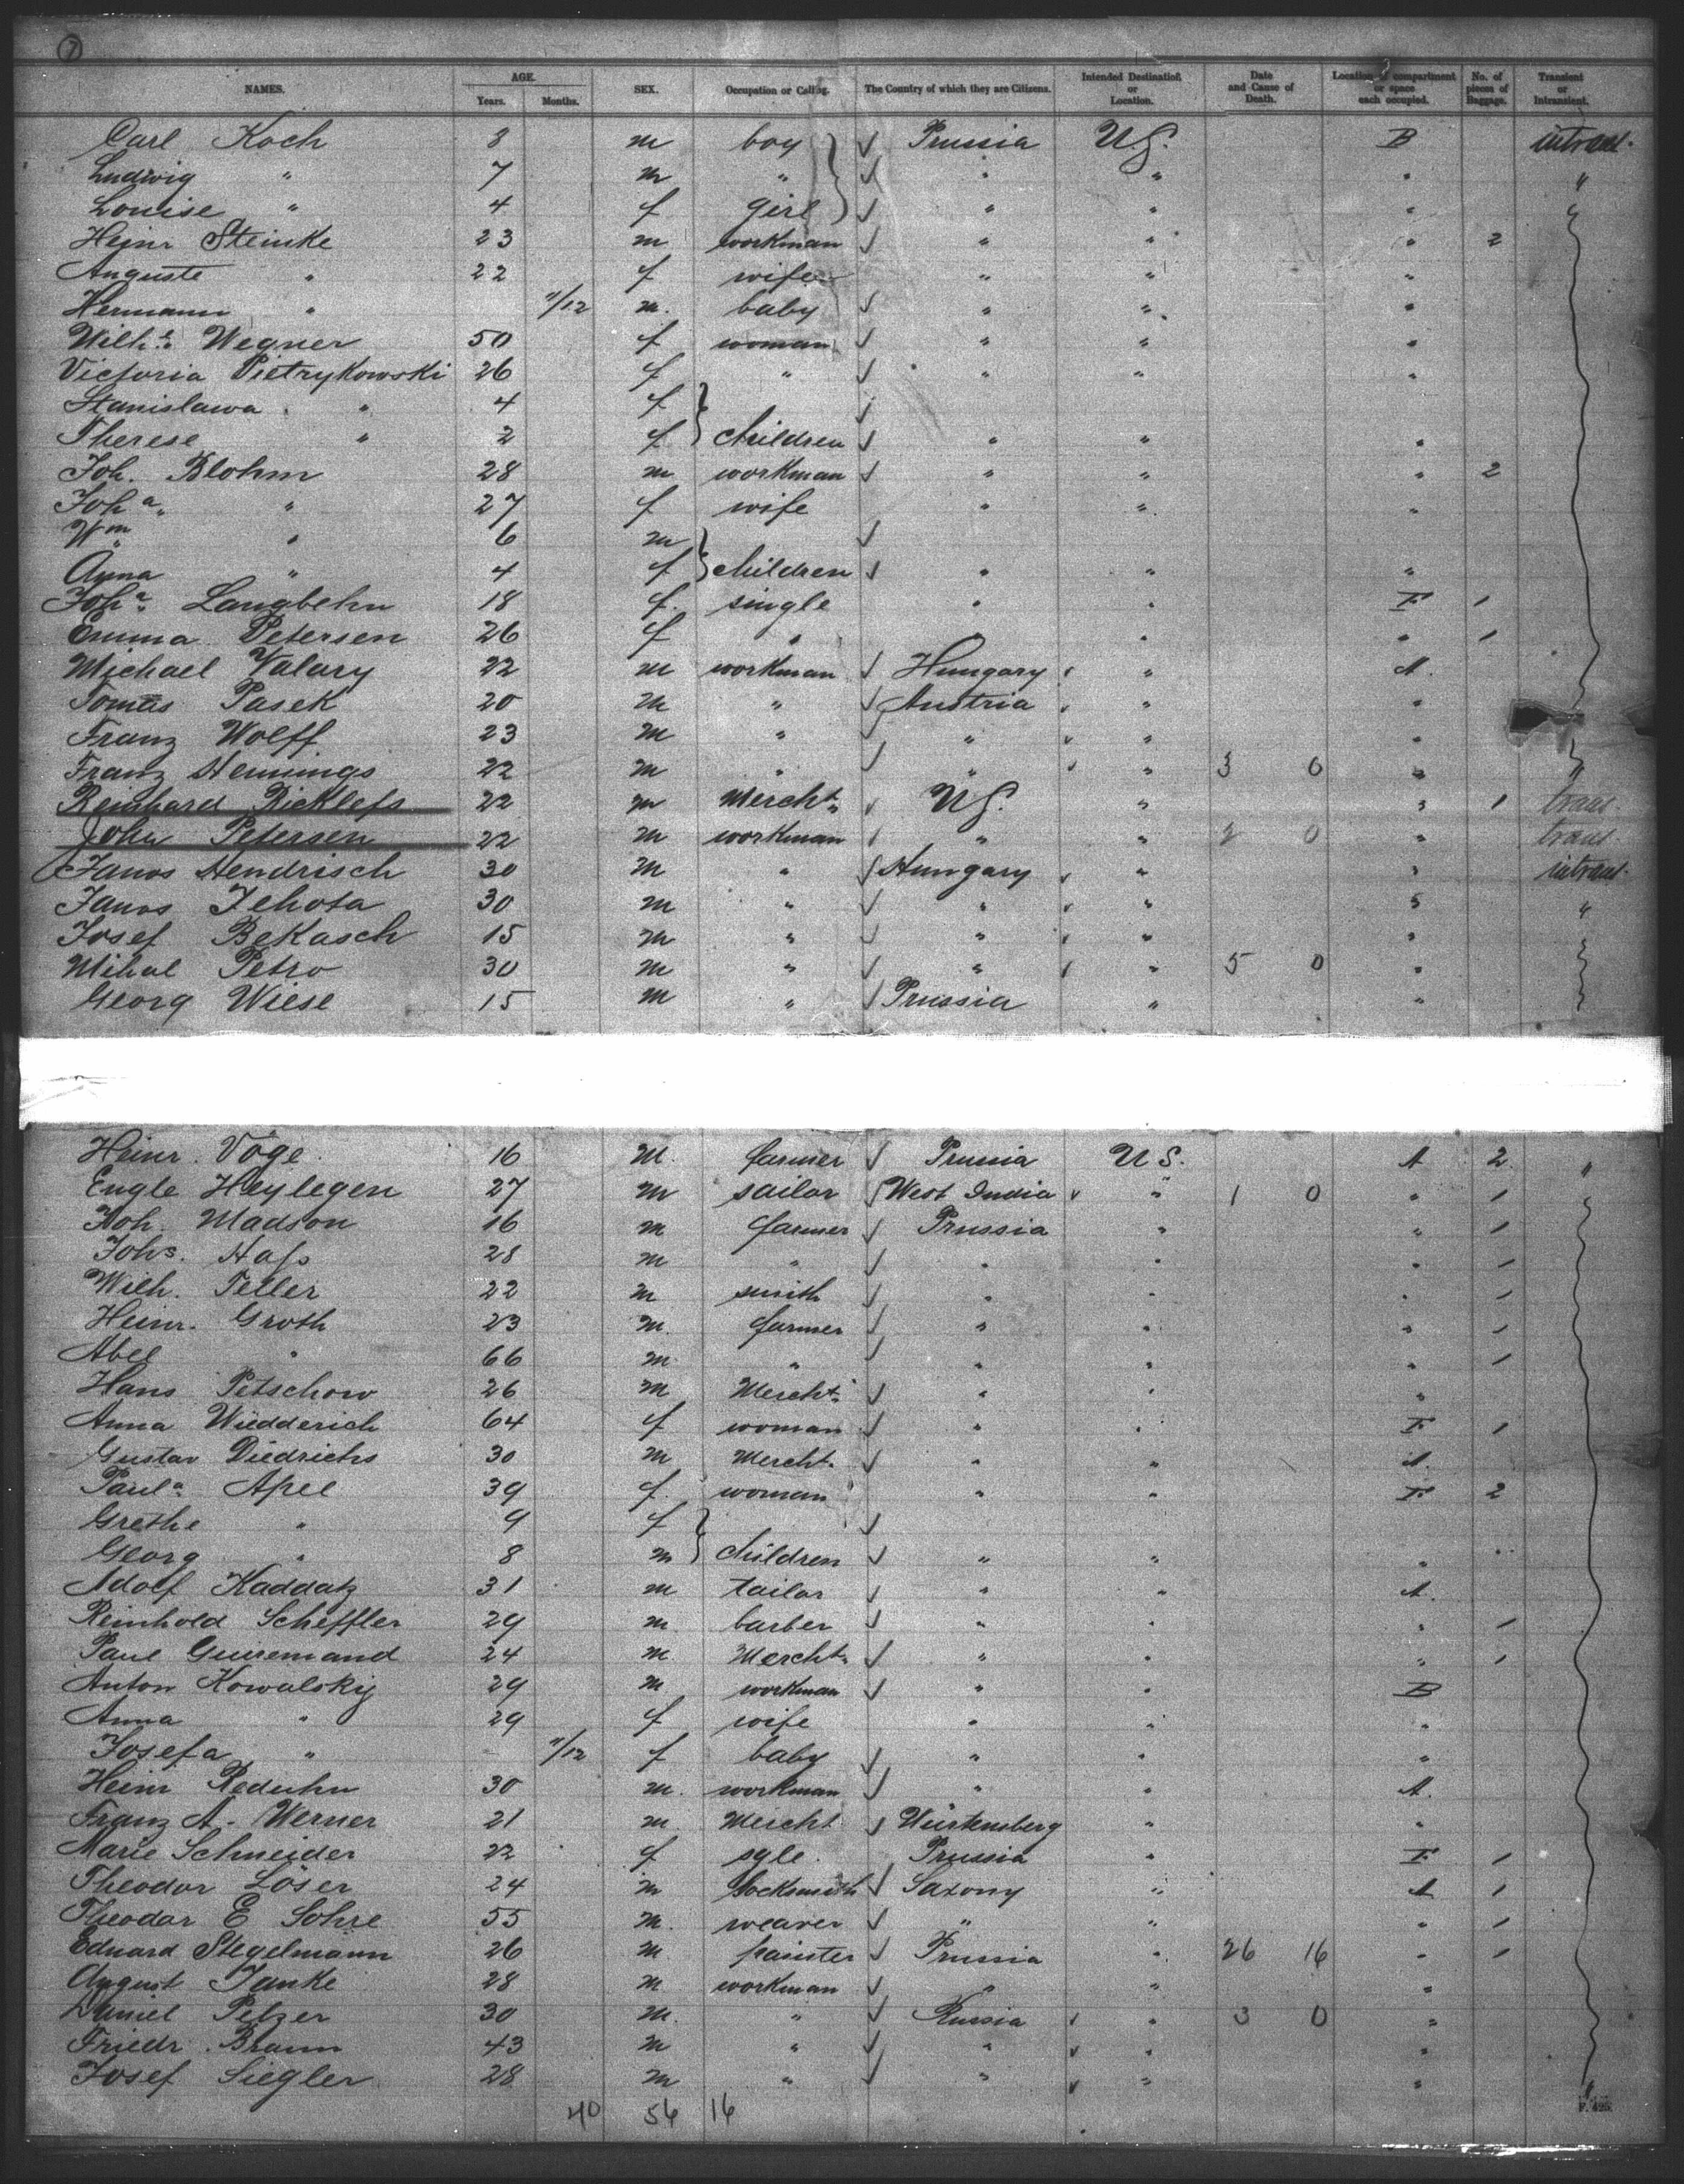 7
NAMES. AGE. Years. Months. SEX. Occupation or Calling. The Country of which they are Citizens. Intended Destination or Location. Date and Cause of Death. Location of compartment or space each occupied. No. of pieces of Baggage. Transient or Intransient.
Carl Koch 8 m boy ✓ Prussia US. B intrans.
Ludwig " 7 m " ✓ " " " "
Louise " 4 f girl ✓ " " "
Heinr Steinke 23 m workman ✓ " " " 2
Auguste " 22 f wife " " "
Hermann " 11/12 m. baby ✓ " " "
Wilh.e Wegner 50 f woman " " "
Victoria Pietrykowski 26 f " ✓ " " "
Stanislawa " 4 f ✓
Therese " 2 f children ✓ " " "
Joh. Blohm 28 m workman ✓ " " " 2
Joh.a " 27 f wife " " "
Wm " 6 m ✓
Anna " 4 f children ✓ " " "
Joh.a Langbehn 18 f. single " " F 1
Emma Petersen 26 f " " " " 1
Michael Valary 22 m workman ✓ Hungary " A.
Tomas Pasek 20 m " ✓ Austria " "
Franz Wolff 23 m " " " "
Franz Hennings 22 m " ✓ " " 3 0 " "
Reinhard Ricklefs 22 m Mercht. ✓ US. " " 1 trans.
John Petersen 22 m workman " " 2 0 " trans.
Janos Hendrisch 30 m " ✓ Hungary " " intrans.
Janos Tehota 30 m " ✓ " " " "
Josef Bekasch 15 m " ✓ " " "
Mihal Petro 30 m " ✓ " " 5 0 "
Georg Wiese 15 m " ✓ Prussia " "
Heinr. Vöge 16 m. farmer ✓ Prussia US. A 2 "
Engle Heylegen 27 m sailor ✓ West India " 1 0 " 1
Joh. Madson 16 m farmer ✓ Prussia " " 1
Johs. Hass 28 m " ✓ " " " 1
Wilh. Teller 22 m smith ✓ " " " 1
Heinr. Groth 23 m. farmer ✓ " " " 1
Abel " 66 m. " ✓ " " " 1
Hans Petschow 26 m Mercht. ✓ " " "
Anna Wiedderich 64 f woman ✓ " " F 1
Gustav Diedrichs 30 m Mercht. ✓ " " A.
Paul.a Apel 39 f. woman " " F 2
Grethe " 9 f ✓
Georg " 8 m children ✓ " " "
Adolf Kaddatz 31 m tailor ✓ " " A.
Reinhold Scheffler 29 m. barber ✓ " " " 1
Paul Guiremand 24 m. Mercht. ✓ " " " 1
Anton Kowalskij 29 m workman ✓ " " B
Anna " 29 f wife " " "
Josefa " 11/12 f baby ✓ " " "
Heinr Reduhn 30 m. workman ✓ " " A.
Franz A. Werner 21 m. Mercht ✓ Würtemberg " "
Marie Schneider 22 f sgle. Prussia " F 1
Theodor Löser 24 m locksmith ✓ Saxony " A 1
Theodor E Sohre 55 m. weaver ✓ " " " 1
Eduard Stegelmann 26 m painter ✓ Prussia " 26 16 " 1
August Janke 28 m. workman ✓ " " "
Daniel Pelzer 30 m. " ✓ Russia " 3 0 "
Friedr. Braun 43 m " ✓ " " "
Josef Siegler 28 m " ✓ " " " "
40 56 16